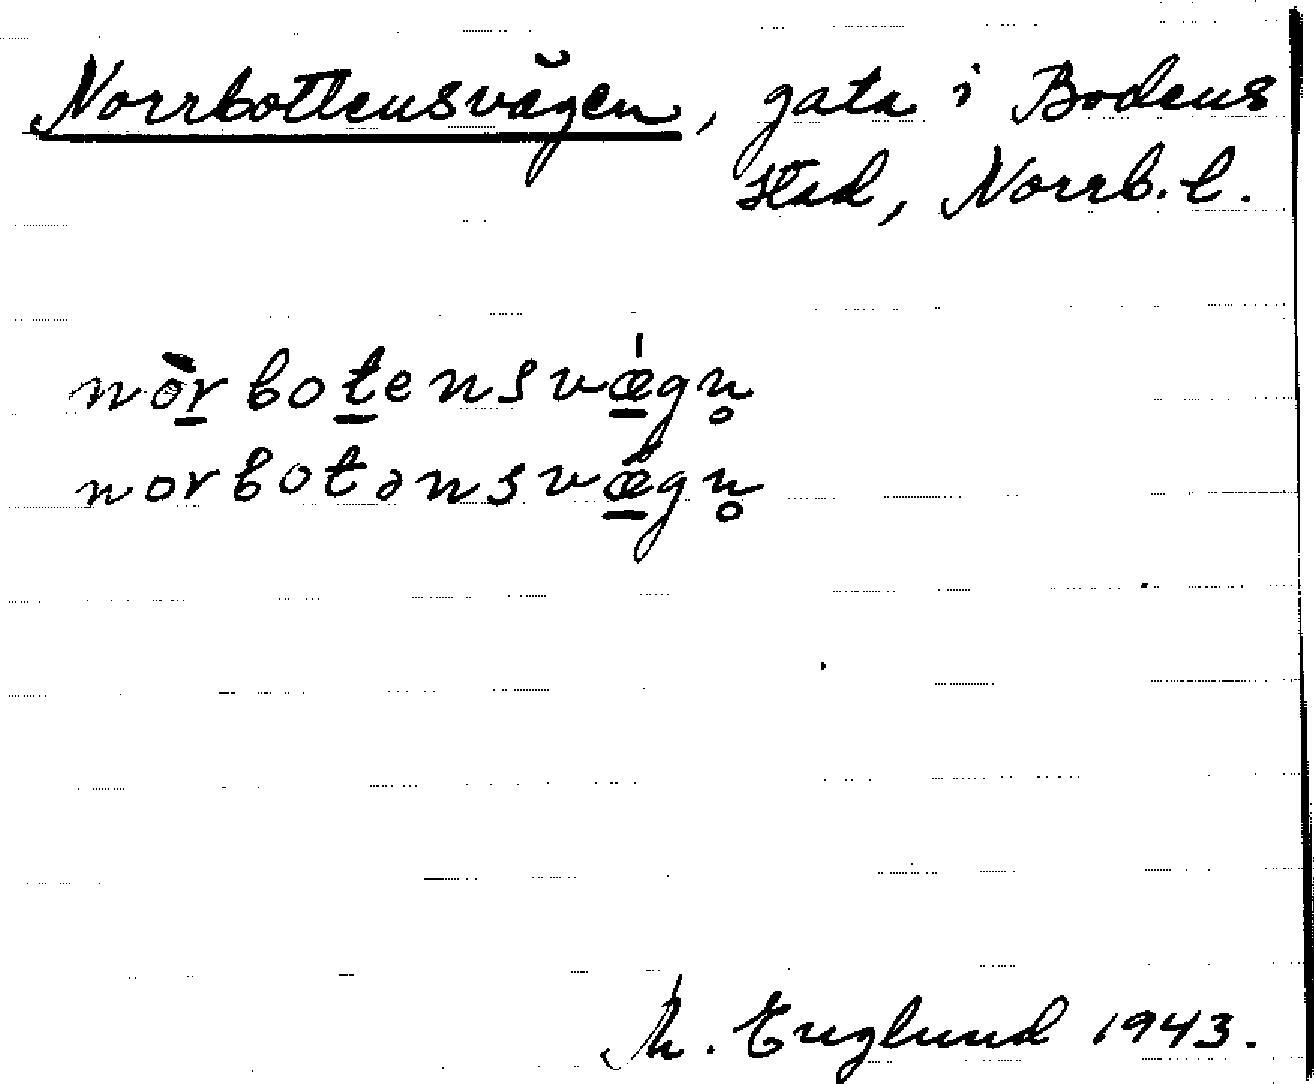 Norrbottensvägen, gata i Bodens
stad, Norrb. l.
nòr̲bot̲ensvǽ̲gn̥
norbotənsvǽ̲gn̥
Th. Englund 1943.